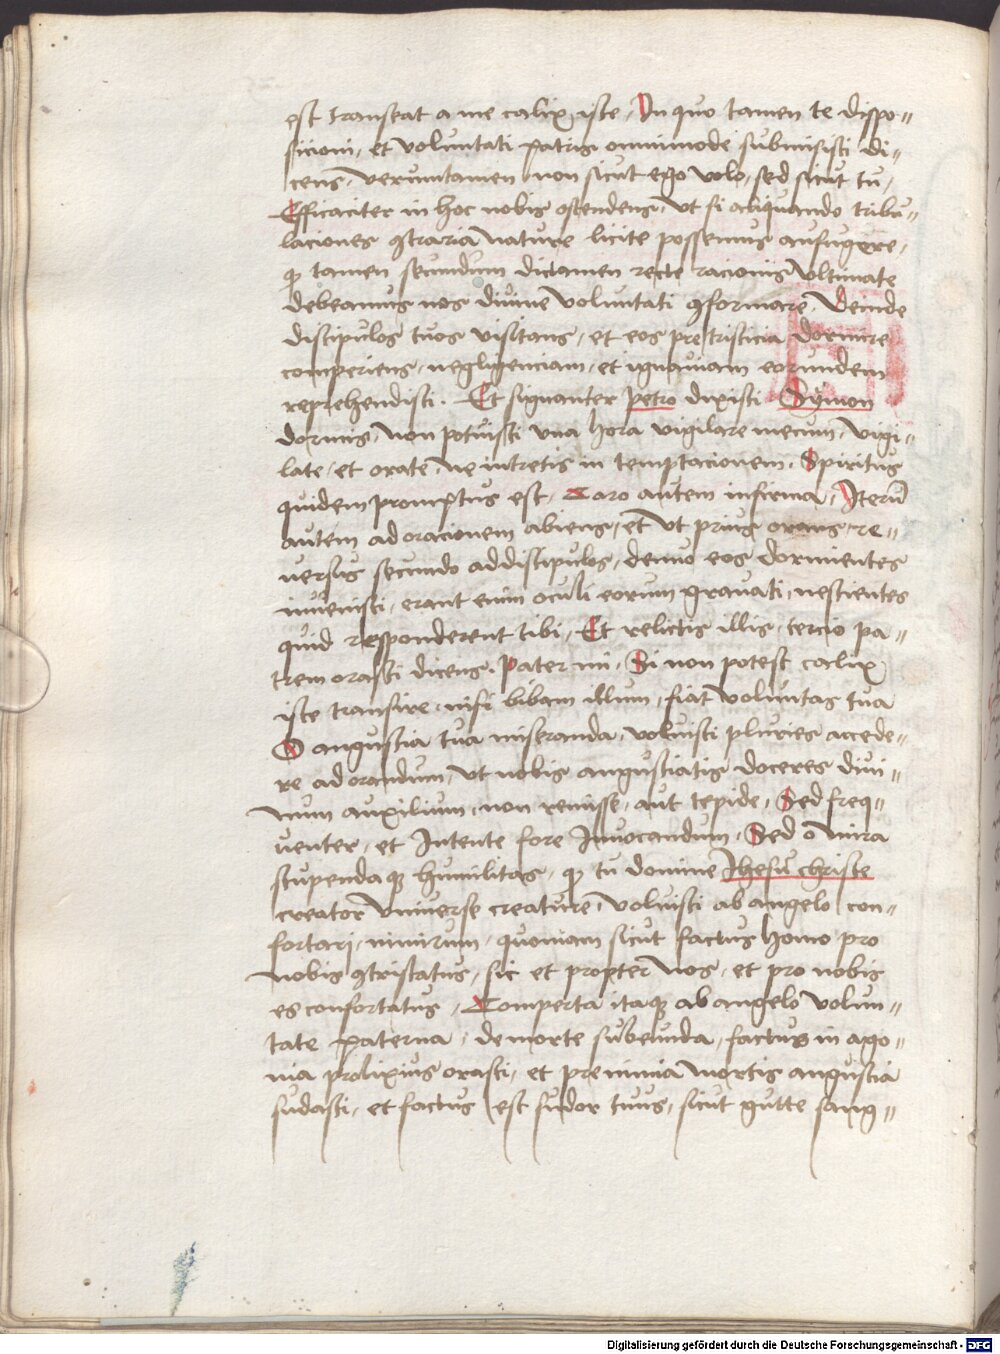 est transeat a me calix iste, In quo tamen te dispo-
sicioni, et voluntati patris omnimode submisisti di-
cens, verumtamen non sicut ego volo, sed sicut tu,
Efficaciter in hoc nobis ostendens, ut si aliquando tribu-
laciones ꝯtraria nature licite possemus aufugere,
ꝙ tamen secundum dictamen recte racionis ultimate
debeamus nos divine voluntati ꝯformare, Deinde
discipulos tuos visitans, et eos pre tristicia dormire
comperiens, negligenciam, et ignaviam eorundem
reprehendisti. Et signanter petro dixisti Symon
dormis, non potuisti una hora vigilare mecum, vigi-
late, et orate, ne intretis in temptacionem, Spiritus
quidem promptus est, Caro autem infirma, Iterū
autem ad oracionem abiens, et ut prius orans, re-
versus secundo ad discipulos, denuo eos dormientes
invenisti, erant enim oculi eorum gravati, nescientes
quid responderent tibi, Et relictis illis, tercio pa-
trem orasti dicens. Pater mi, Si non potest calix
iste transire, nisi bibam illum, fiat voluntas tua
O angustia tua miseranda, voluisti pluries accede-
re ad orandum, ut nobis angustiatis doceres divi-
num auxilium, non remisse, aut tepide, Sed freq-
uenter, et Intente fore Invocandum, Sed o mira
stupendaqꝫ humilitas, ꝙ tu domine Ihesu christe
creator universe creature, voluisti ab angelo con-
fortari, nimirum, quoniam sicut factus homo pro
nobis ꝯtristatus, sic et propter nos, et pro nobis
es confortatus, Comperta itaqꝫ ab angelo volun-
tate paterna, de morte subeunda, factus in ago-
nia prolixius orasti, et pre nimia mortis angustia
sudasti, et factus est sudor tuus, sicut gutte sang-
Digitalisierung gefördert durch die Deutsche Forschungsgemeinschaft - DFG